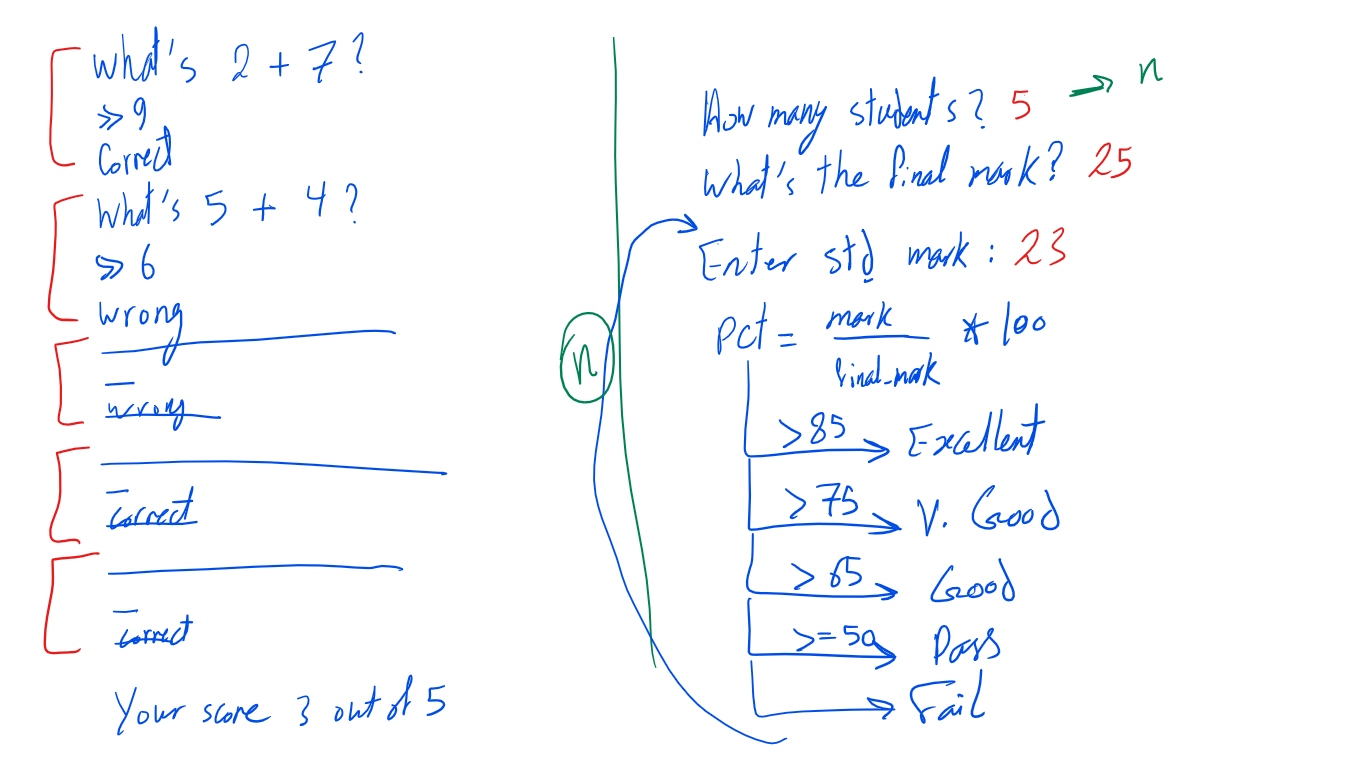 What's 2 + 7 ?
>> 9
Correct
What's 5 + 4 ?
>> 6
wrong
wrong
correct
correct
Your score 3 out of 5
n
How many students? 5 → n
What's the final mark? 25
Enter std mark : 23
Pct = mark / final_mark * 100
>85 Excellent
>75 V. Good
>65 Good
>=50 Pass
Fail